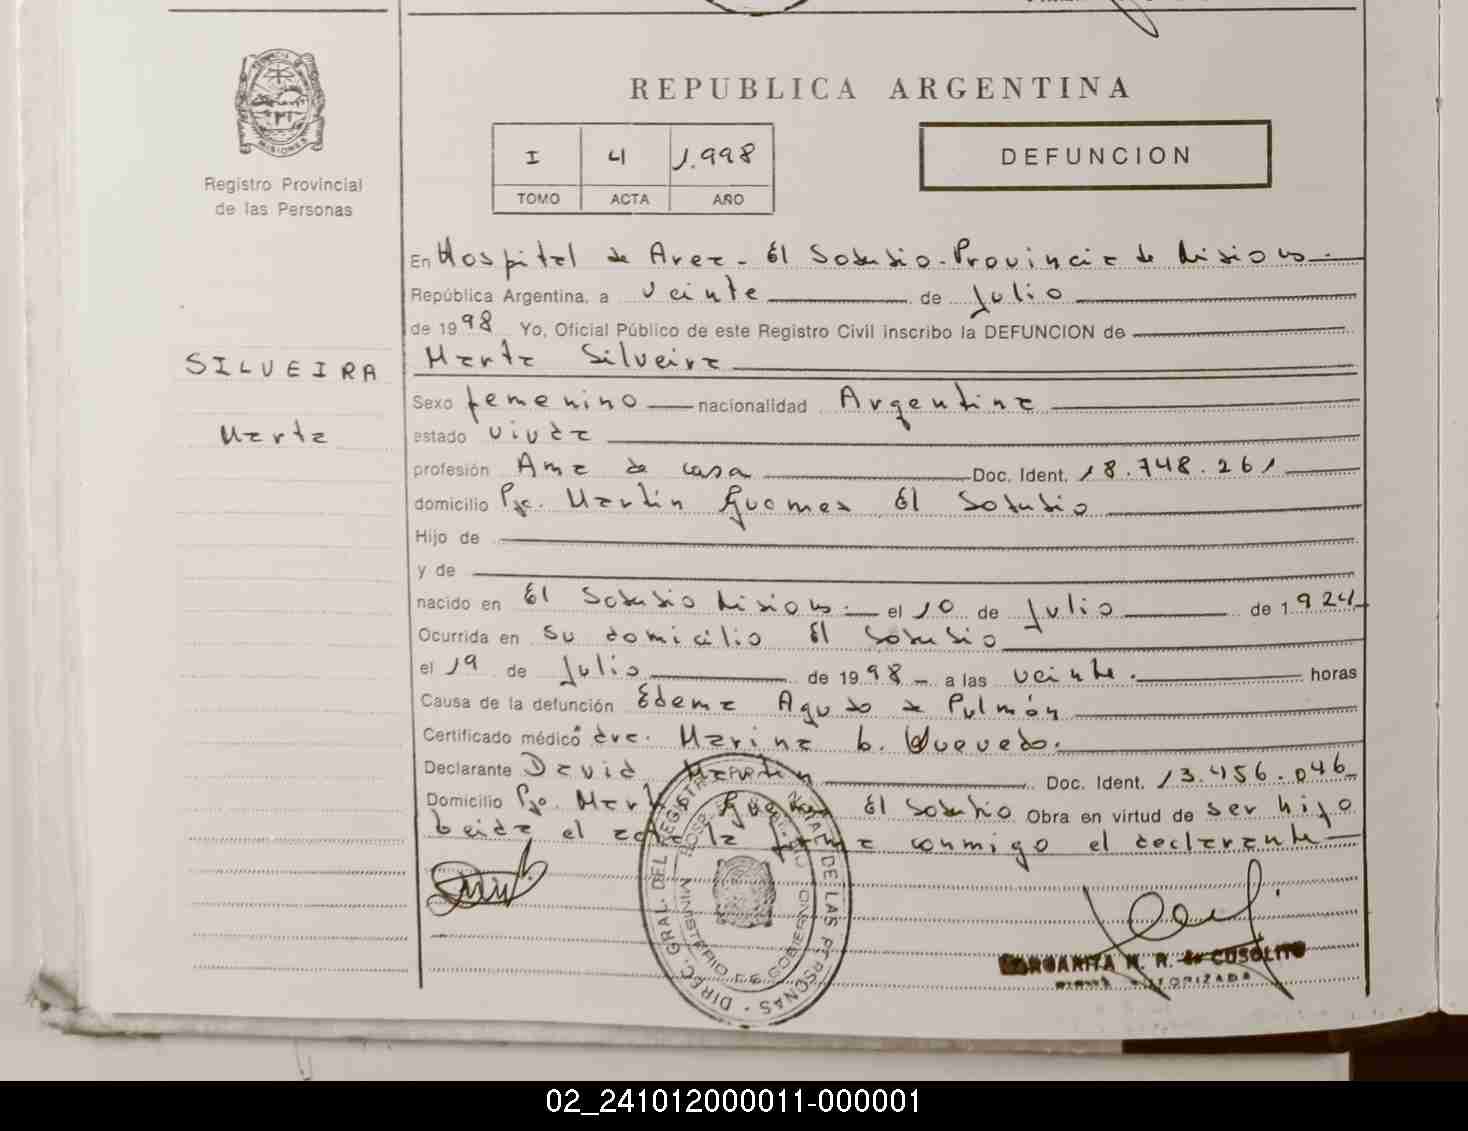 REPUBLICA ARGENTINA
PROVINCIA DE
MISIONES
Registro Provincial
de las Personas
I 4 1.998
TOMO ACTA AÑO
DEFUNCION
En Hospital de Area - El Soberbio - Provincia de Misiones
República Argentina, a veinte de Julio
de 1998 Yo, Oficial Público de este Registro Civil inscribo la DEFUNCION de
Marta Silveira
SILVEIRA
Marta
Sexo femenino nacionalidad Argentina
estado viuda
profesión Ama de casa Doc. Ident. 18.748.261
domicilio Pje. Martín Guemes El Soberbio
Hijo de
y de
nacido en El Soberbio Misiones el 10 de Julio de 1.924
Ocurrida en su domicilio El Soberbio
el 19 de Julio de 1998 a las veinte horas
Causa de la defunción Edema Agudo de Pulmón
Certificado médico dra. Marina b. Quevedo.
Declarante David Martin Doc. Ident. 13.456.046
Domicilio Pje. Martin Guemes El Soberbio Obra en virtud de ser hijo
leida el acta la firma conmigo el declarante
DIREC. GRAL. DEL REGISTRO DE LAS PERSONAS
MINISTERIO DE GOBIERNO
MARGARITA N. R. de CUSOLITO
FIRMA AUTORIZADA
02_241012000011-000001